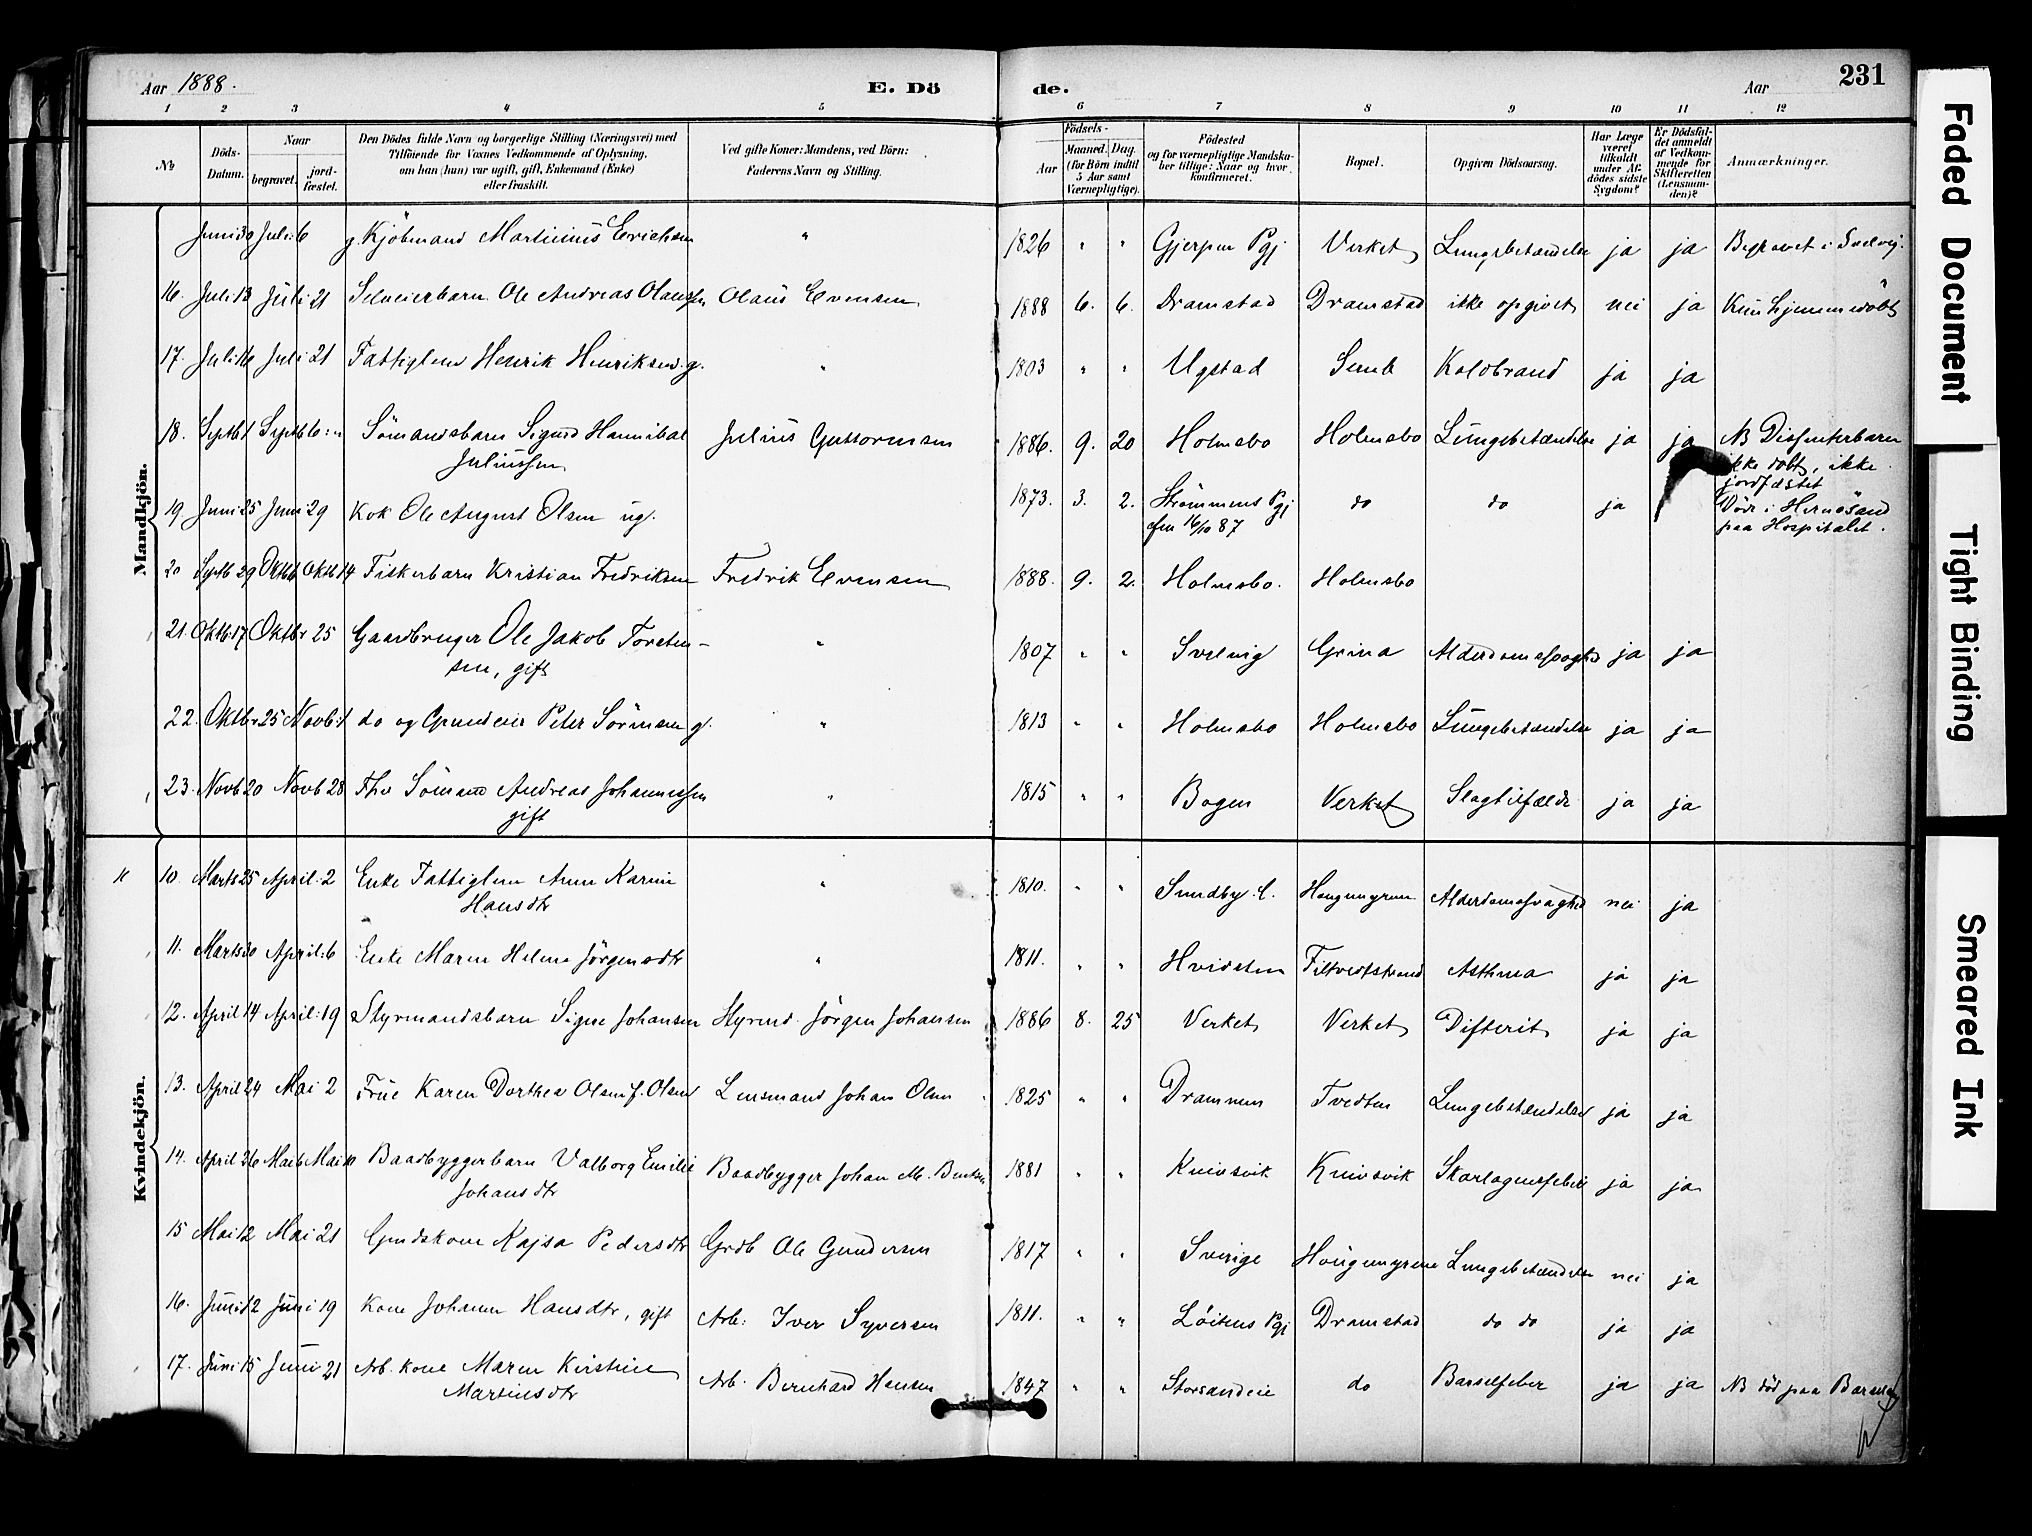 Aar 1888. E. Dö de. Aar 231
1 2 3 4 5 6 7 8 9 10 11 12
No Döds-Datum. Naar begravet. jord-fæstet. Den Dödes fulde Navn og borgerlige Stilling (Næringsvei) med Tilföiende for Voxnes Vedkommende af Oplysning, om han (hun) var ugift, gift, Enkemand (Enke) eller fraskilt. Ved gifte Koner: Mandens, ved Börn: Faderens Navn og Stilling. Födsels- Aar Maaned. Dag. (for Börn indtil 5 Aar samt Værnepligtige). Födested og for værnepligtige Mandska-ber tillige: Naar og hvor konfirmeret. Bopæl. Opgiven Dödsaarsag. Har Læge været tilkaldt under Af-dödes sidste Sygdom? Er Dödsfal-det anmeldt af Vedkom-mende for Skifteretten (Lensman-den)? Anmærkninger.
Mandkjön.
Juni 30 Juli 6 g. Kjöbmand Martinius Erichsen " 1826 " " Gjerpen Pgj Verket Lungebetændelse ja ja Begravet i Svelvig.
16. Juli 13 Juli 21 Selveierbarn Ole Andreas Olaussen Olaus Evensen 1888 6. 6. Dramstad Dramstad ikke opgivet nei ja Kun hjemmedöbt
17. Juli 16 Juli 21 Fattiglem Henrik Henriksen g. " 1803 " " Ugstad Sund Koldbrand ja ja
18. Septb 1 Septb 6 Sömandsbarn Sigurd Hannibal Juliussen Julius Guttormsen 1886. 9. 20 Holmsbo Holmsbo Lungebetændelse ja ja NB Dissenterbarn ikke döbt, ikke jordfæstet
19 Juni 25 Juni 29 Kok Ole August Olsen ug. 1873. 3. 2. Strömmens Pgj cfm 16/10 87 do do ja Döde i Hernösand paa Hospitalet.
20 Septb 29 Oktb 6 Oktb 14 Fiskerbarn Kristian Fredriksen Fredrik Evensen 1888. 9. 2. Holmsbo. Holmsbo
21. Oktb 17 Oktbr 25 Gaardbruger Ole Jakob Torsten-sen, gift " 1807 " " Svelvig Grina Alderdomssvaghed ja ja
22. Oktbr 25 Novb: 1 do og Grundeier Peter Sörensen g. " 1813 " " Holmsbo Holmsbo Lungebetændelse ja ja
23. Novb 20 Novb 28 Fhv Sömand Andreas Johannessen gift " 1815 " " Bogen Verket Slagtilfælde ja ja
Kvindekjön.
10. Marts 25 April 2 Enke Fattiglem Anne Karine Hansdtr " 1810. " " Sundby Hougmyren Alderdomssvaghed nei ja
11. Marts 30 April: 6 Enke Maren Helene Jörgensdtr " 1811. " " Hvidsten Filtvedtstrand Asthma ja ja
12. April 14 April: 19 Styrmandsbarn Signe Johansen Styrmd. Jörgen Johansen 1886 8. 25 Verket Verket Difterit ja ja
13. April 24 Mai 2 Frue Karen Dorthea Olsen f. Olsen Lensmand Johan Olsen 1825 " " Drammen Tvedten Lungebetændelse ja ja
14. April 26 Mai 6 Mai 10 Baadbyggerbarn Valborg Emilie Johansdtr Baadbygger Johan M. Bentsen 1881 " " Knivsvik Knivsvik Skarlagensfeber ja ja
15 Mai 12 Mai 21 Grndskone Kajsa Pedersdtr Grdb Ole Gundersen 1817 " " Sverige Hougmyrene Lungebetændelse nei ja
16. Juni 12 Juni 19 Kone Johanne Hansdtr, gift Arb: Iver Syversen 1811. " " Löitens Pgj Dramstad do do ja ja
17. Juni 15 Juni 21 Arb. kone Maren Kirstine Martinsdtr Arb. Bernhard Hansen 1847 " " Storsandeie do Barselfeber ja ja NB död paa Barselseng
Faded Document
Tight Binding
Smeared Ink